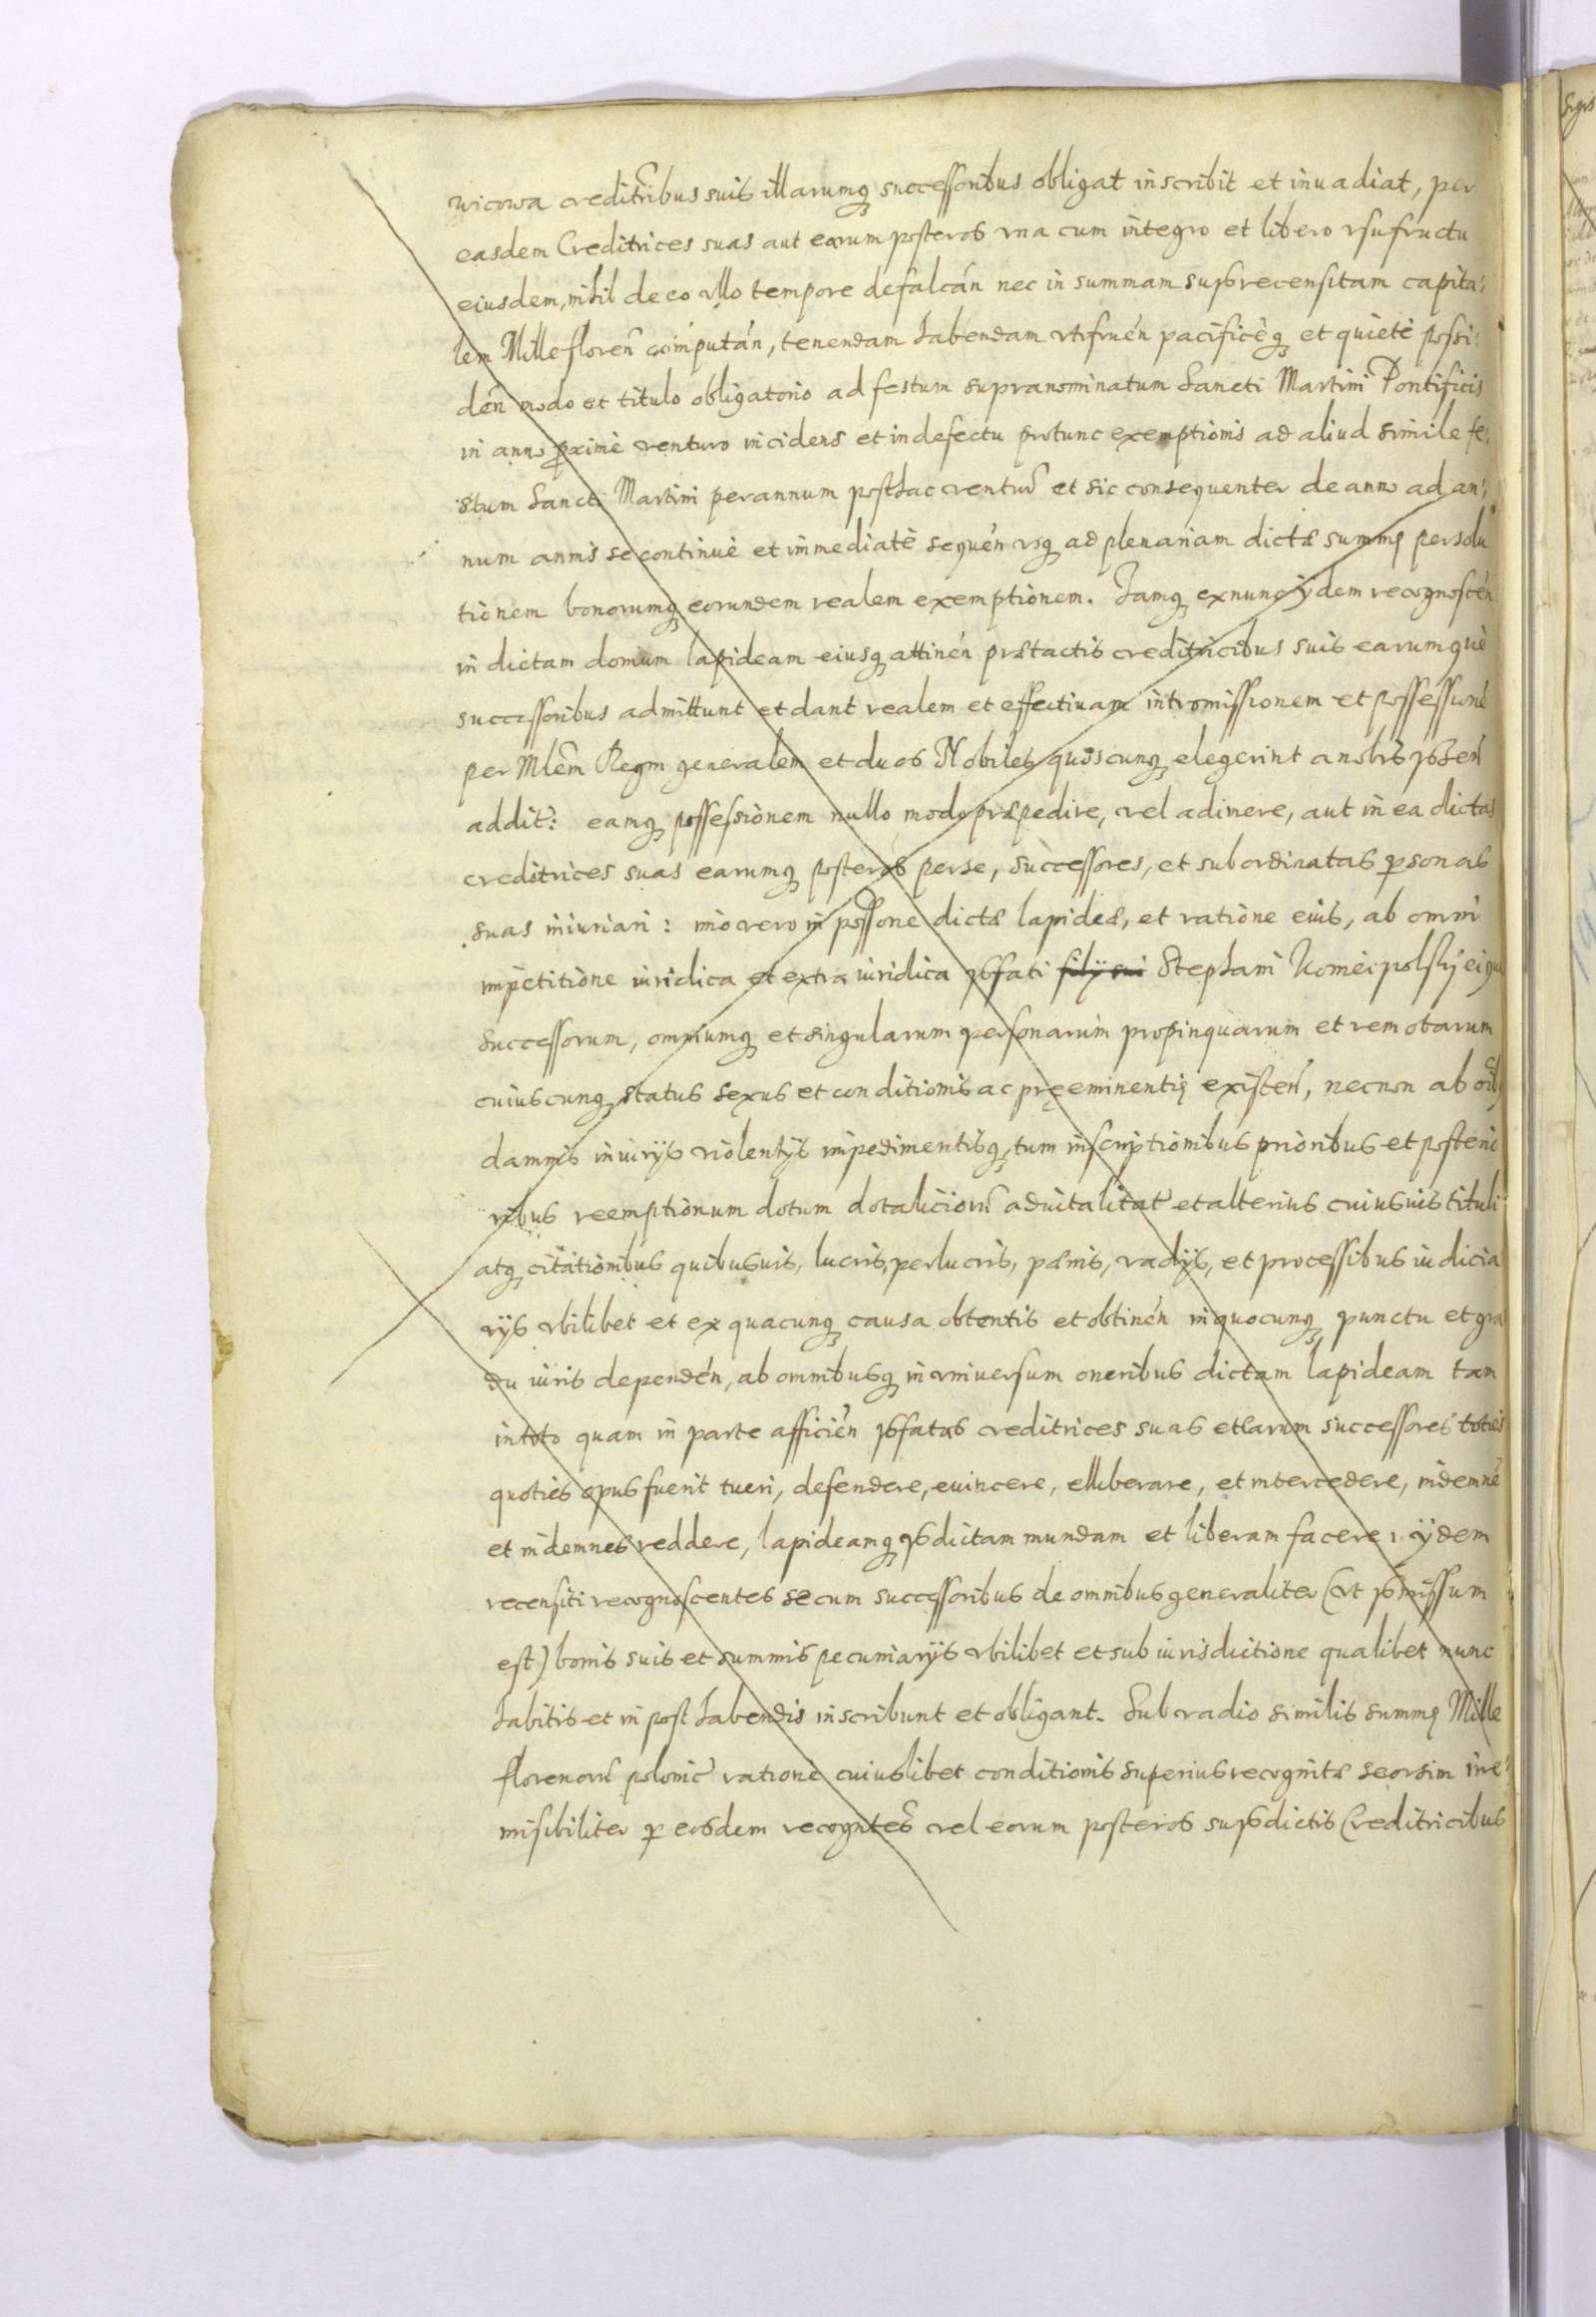 wicowa creditribus suis illarumq successoribus obligat inscribit et inuadiat, per
easdem Creditrices suas aut earum posteros vna cum integro et libero vsufructu
eiusdem, nihil de eo vllo tempore defalcan nec in summam suprecensitam capita:
lem Mille floren computan, tenendam habendam vtifruen pacificeq et quiete possi:
den modo et titulo obligatorio ad festum supranominatum Sancti Martini Pontificis
in anno proxime venturo incidens et in defectu protunc exemptionis ad aliud simile fe:
stum Sancti Martini per annum posthac ventur et sic consequenter de anno ad an:
num annis se continue et immediate sequen vsq ad plenariam dictæ summę persolu
tionem bonorumq eorundem realem exemptionem. Iamq exnunc ijdem recognoscen
in dictam domum lapideam eiusq attinen prætactis creditricibus suis earumque
successoribus admittunt et dant realem et effectiuam intromissionem et possessione
per Mlem Regm generalem et duos Nobiles quoscunq elegerint a nobis psen
addit: eamq possessionem nullo modo præpedire, vel adimere, aut in ea dictas
creditrices suas earumq posteros per se, successores, et subordinatas personas
suas iniuriari: imo vero in possone dictæ lapideæ, et ratione eius, ab omni
impetitione iuridica et extra iuridica pfati filij sui Stephani Komeipolskj eiq
successorum, omniumq et singularum personarum propinquarum et remotarum
cuiuscunq status sexus et conditionis ac pręeminentię existen, necnon ab oib
damnis iniurijs violentijs impedimentisq, tum inscriptionibus prioribus et posterio
ribus reemptionum dotum dotalicior aduitalitat et alterius cuiusuis tituli
atq citationibus quibusuis, lucris, perlucris, pænis, vadijs, et processibus iudicia
rijs vbilibet et ex quacunq causa obtentis et obtinen in quocunq punctu et gra
du iuris dependen, ab omnibusq in vniuersum oneribus dictam lapideam tam
in toto quam in parte afficien pfatas creditrices suas et earum successores toties
quoties opus fuerit tueri, defendere, euincere, elliberare, et intercedere, indemne
et indemnes reddere, lapideamq pdictam mundam et liberam facere, ijdem
recensiti recognoscentes se cum successoribus de omnibus generaliter (vt pmissum
est) bonis suis et summis pecuniarijs vbilibet et sub iurisdictione qualibet nunc
habitis et in post habendis inscribunt et obligant. Sub vadio similis summę Mille
florenor polonic ratione cuiuslibet conditionis superius recognitæ seorsim irre:
misibiliter per eosdem recogntes vel eorum posteros supdictis Creditricibus